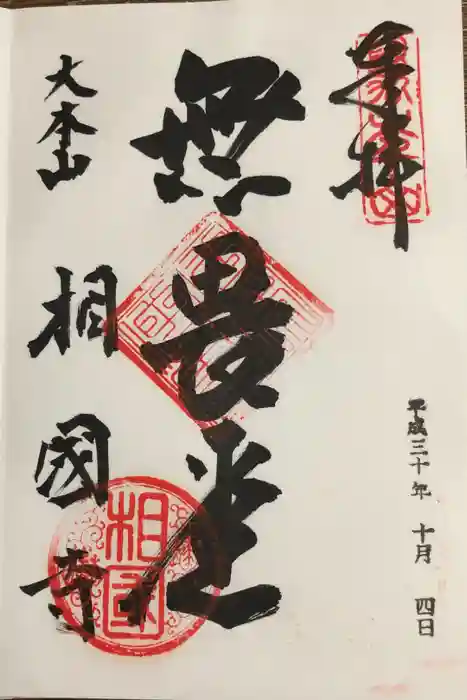 奉拝
平成三十年 十月 四日
無畏堂
大本山
相国寺
相国